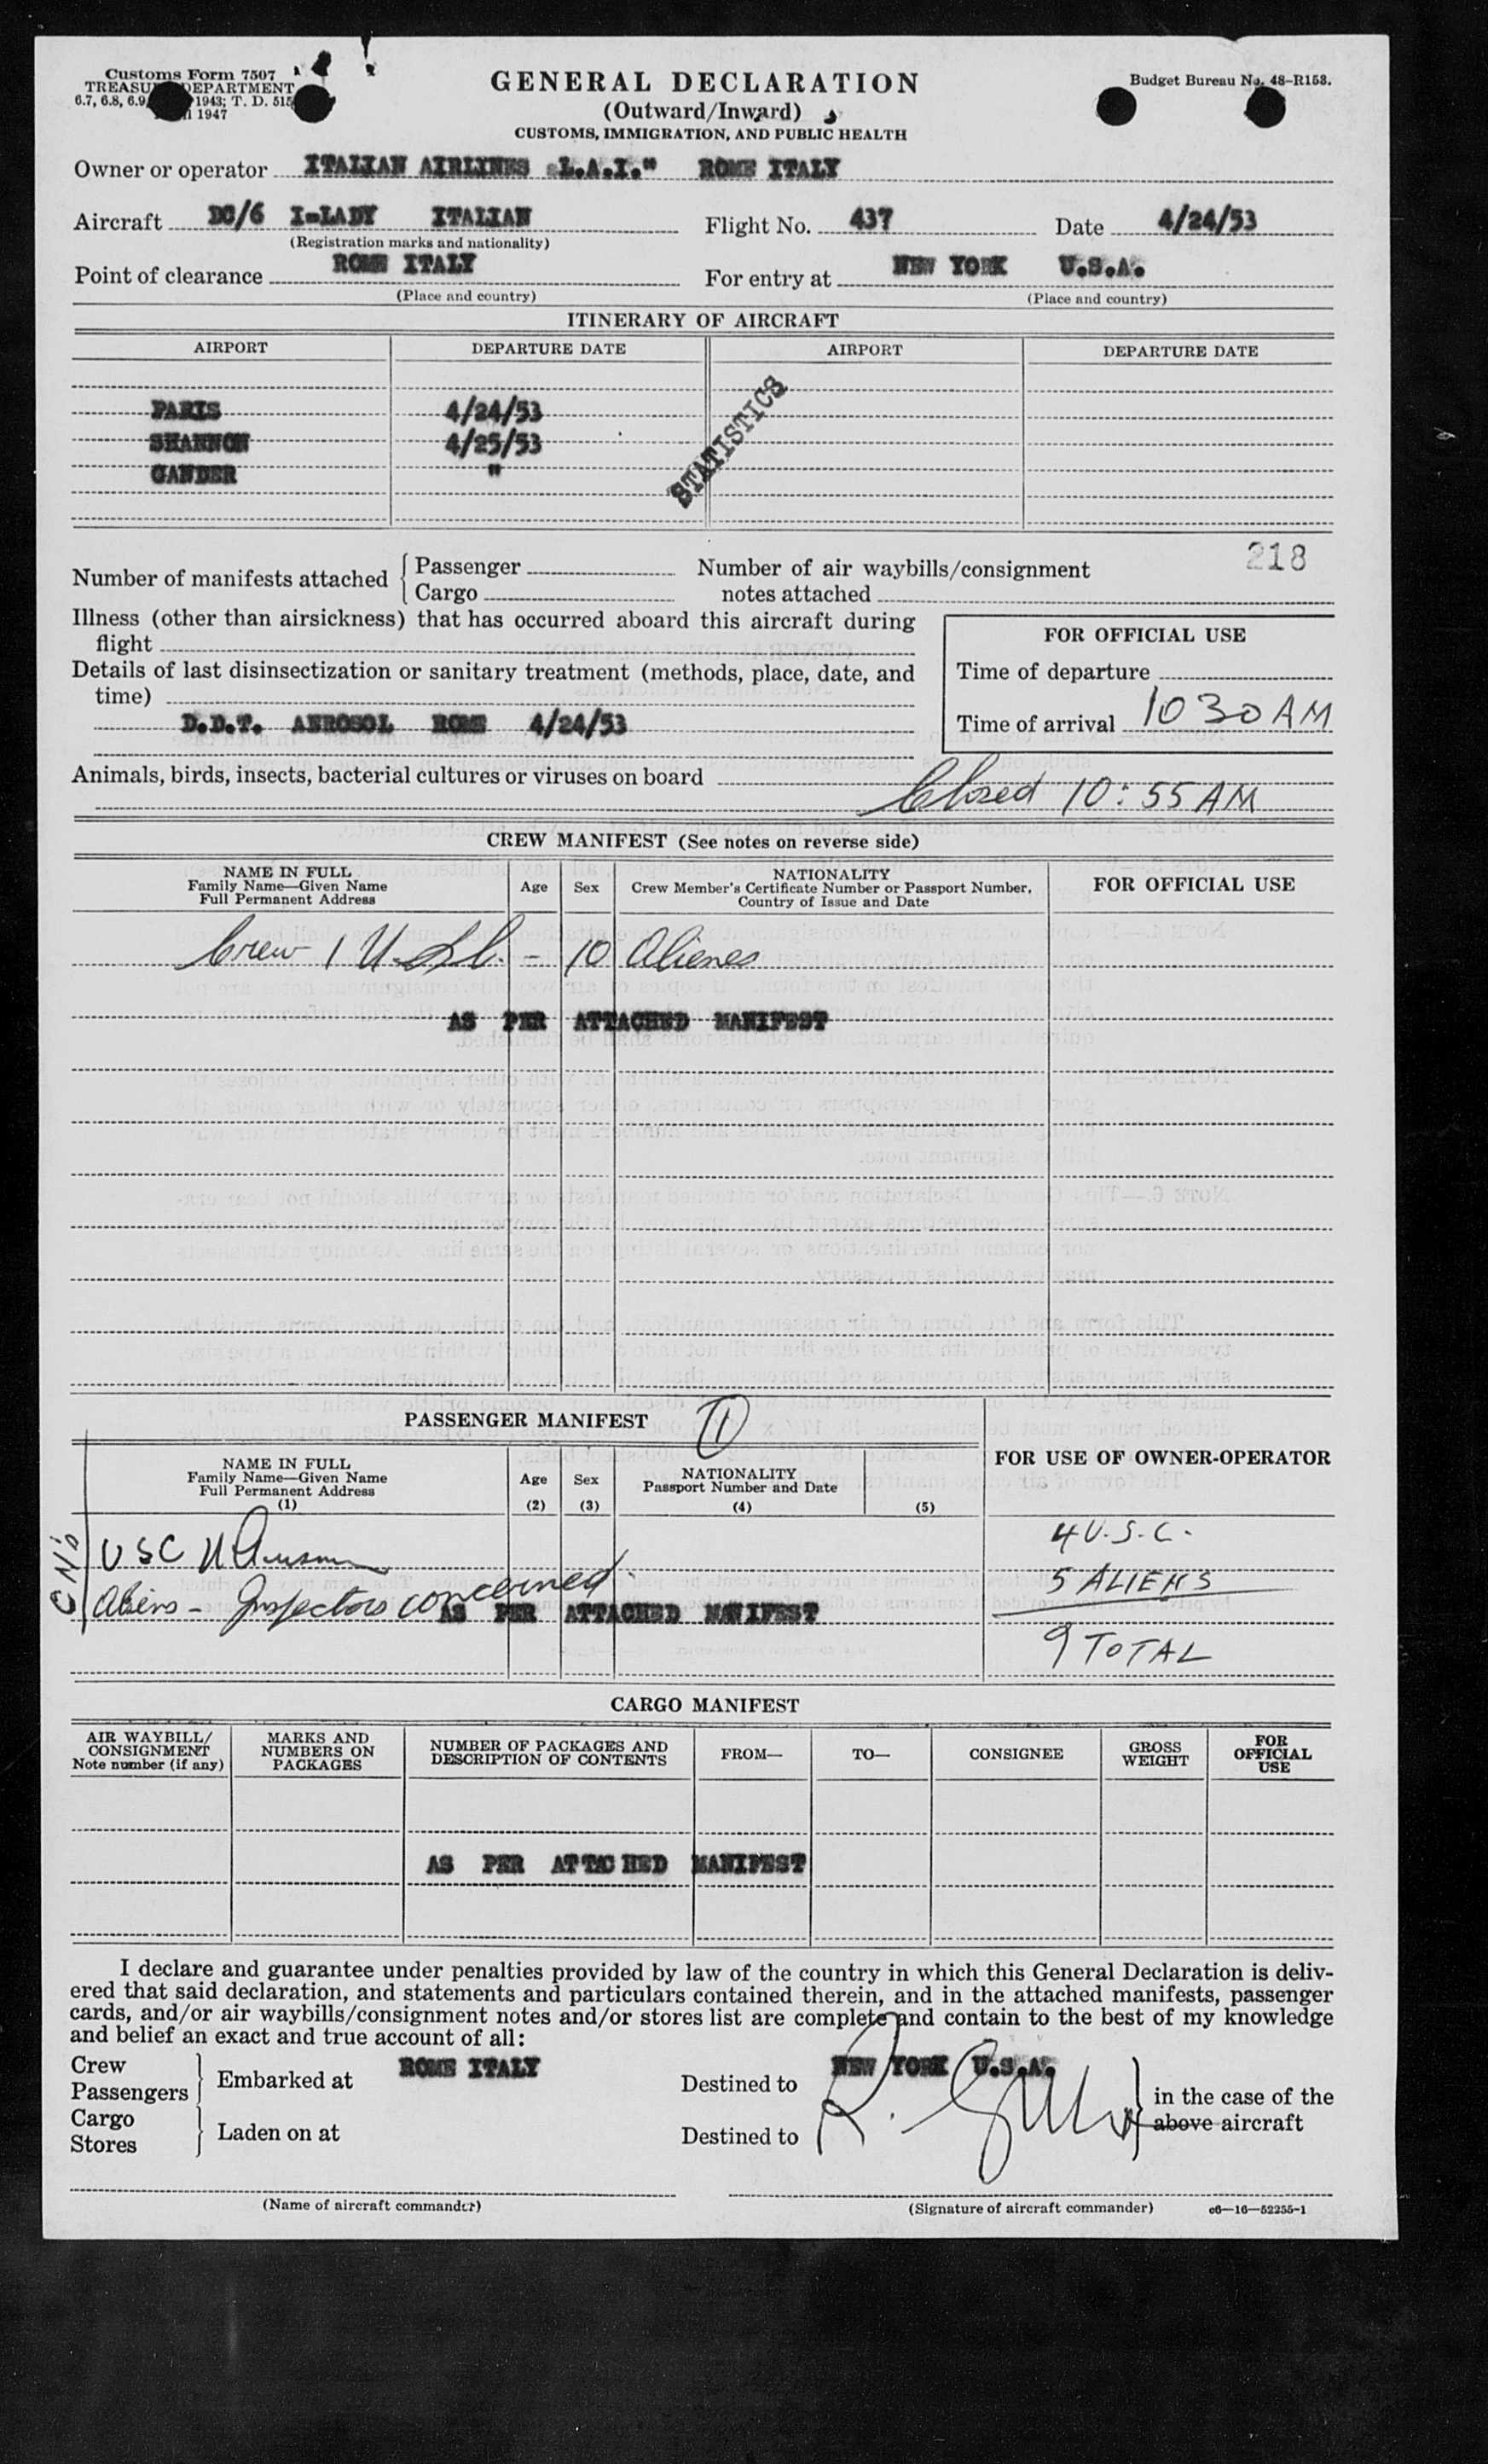 Customs Form 7507
TREASURY DEPARTMENT
6.7, 6.8, 6.9, 1943; T. D. 515
1947
GENERAL DECLARATION
(Outward/Inward)
CUSTOMS, IMMIGRATION, AND PUBLIC HEALTH
Budget Bureau No. 48-R158.
Owner or operator ITALIAN AIRLINES "L.A.I." ROME ITALY
Aircraft DC/6 I-LADY ITALIAN Flight No. 437 Date 4/24/53
(Registration marks and nationality)
Point of clearance ROME ITALY For entry at NEW YORK U.S.A.
(Place and country) (Place and country)
ITINERARY OF AIRCRAFT
AIRPORT DEPARTURE DATE AIRPORT DEPARTURE DATE
PARIS 4/24/53
SHANNON 4/25/53
GANDER "
STATISTICS
218
Number of manifests attached { Passenger
Cargo
Number of air waybills/consignment
notes attached
Illness (other than airsickness) that has occurred aboard this aircraft during
flight
Details of last disinsectization or sanitary treatment (methods, place, date, and
time)
D.D.T. AEROSOL ROME 4/24/53
FOR OFFICIAL USE
Time of departure
Time of arrival 10 30 AM
Animals, birds, insects, bacterial cultures or viruses on board
Closed 10:55 AM
CREW MANIFEST (See notes on reverse side)
NAME IN FULL
Family Name—Given Name
Full Permanent Address
Age
Sex
NATIONALITY
Crew Member's Certificate Number or Passport Number,
Country of Issue and Date
FOR OFFICIAL USE
Crew 1 U.S.C. - 10 Alienes
AS PER ATTACHED MANIFEST
PASSENGER MANIFEST
11
NAME IN FULL
Family Name—Given Name
Full Permanent Address
(1)
Age
(2)
Sex
(3)
NATIONALITY
Passport Number and Date
(4)
(5)
FOR USE OF OWNER-OPERATOR
USC
Aliens - Inspectors concerned
AS PER ATTACHED MANIFEST
4 U.S.C.
5 ALIENS
9 TOTAL
CARGO MANIFEST
AIR WAYBILL/
CONSIGNMENT
Note number (if any)
MARKS AND
NUMBERS ON
PACKAGES
NUMBER OF PACKAGES AND
DESCRIPTION OF CONTENTS
FROM—
TO—
CONSIGNEE
GROSS
WEIGHT
FOR
OFFICIAL
USE
AS PER ATTACHED MANIFEST
I declare and guarantee under penalties provided by law of the country in which this General Declaration is deliv-
ered that said declaration, and statements and particulars contained therein, and in the attached manifests, passenger
cards, and/or air waybills/consignment notes and/or stores list are complete and contain to the best of my knowledge
and belief an exact and true account of all:
Crew
Passengers } Embarked at ROME ITALY Destined to NEW YORK U.S.A.
Cargo
Stores } Laden on at Destined to
in the case of the
above aircraft
(Name of aircraft commander) (Signature of aircraft commander) c6—16—52255-1